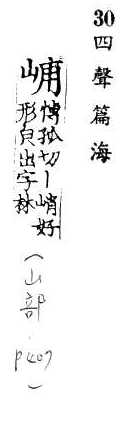 30 四聲篇海
峬 博孤切丨峭好
形皃出字林
(山部 p407)